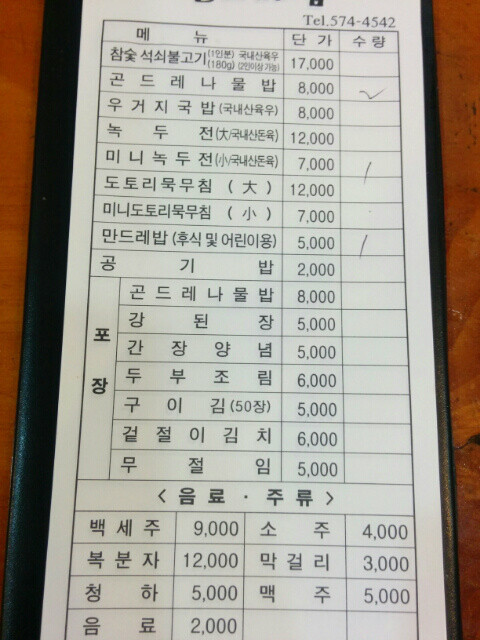 Tel.574-4542
메 뉴 단 가 수 량
참숯 석쇠불고기 (1인분) 국내산육우 (180g) (2인이상 가능) 17,000
곤 드 레 나 물 밥 8,000
우 거 지 국 밥 (국내산육우) 8,000
녹 두 전 (大/국내산돈육) 12,000
미 니 녹 두 전 (小/국내산돈육) 7,000
도토리묵무침 ( 大 ) 12,000
미니도토리묵무침 ( 小 ) 7,000
만드레밥 (후식 및 어린이용) 5,000
공 기 밥 2,000
포 장
곤 드 레 나 물 밥 8,000
강 된 장 5,000
간 장 양 념 5,000
두 부 조 림 6,000
구 이 김 (50장) 5,000
겉 절 이 김 치 6,000
무 절 임 5,000
< 음 료 · 주 류 >
백 세 주 9,000 소 주 4,000
복 분 자 12,000 막 걸 리 3,000
청 하 5,000 맥 주 5,000
음 료 2,000